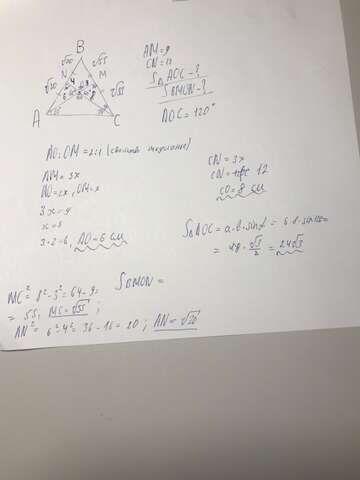 B
√20 √55
N M
4 3
6 8
√20 √55
A C
AM = 9
CN = 12
S△AOC - ?
SBMON - ?
AOC = 120°
AO:OM = 2:1 (свойство медианы)
AM = 3x
AO = 2x, OM = x
3x = 9
x = 3
3·2=6, AO = 6 см
CN = 3x
CN = 12
CO = 8 см
S△AOC = a·b·sinα = 6·8·sin120=
= 48·√3/2 = 24√3
MC² = 8² - 3² = 64 - 9 =
= 55, MC = √55 ;
SBMON =
AN² = 6² - 4² = 36 - 16 = 20 ; AN = √20